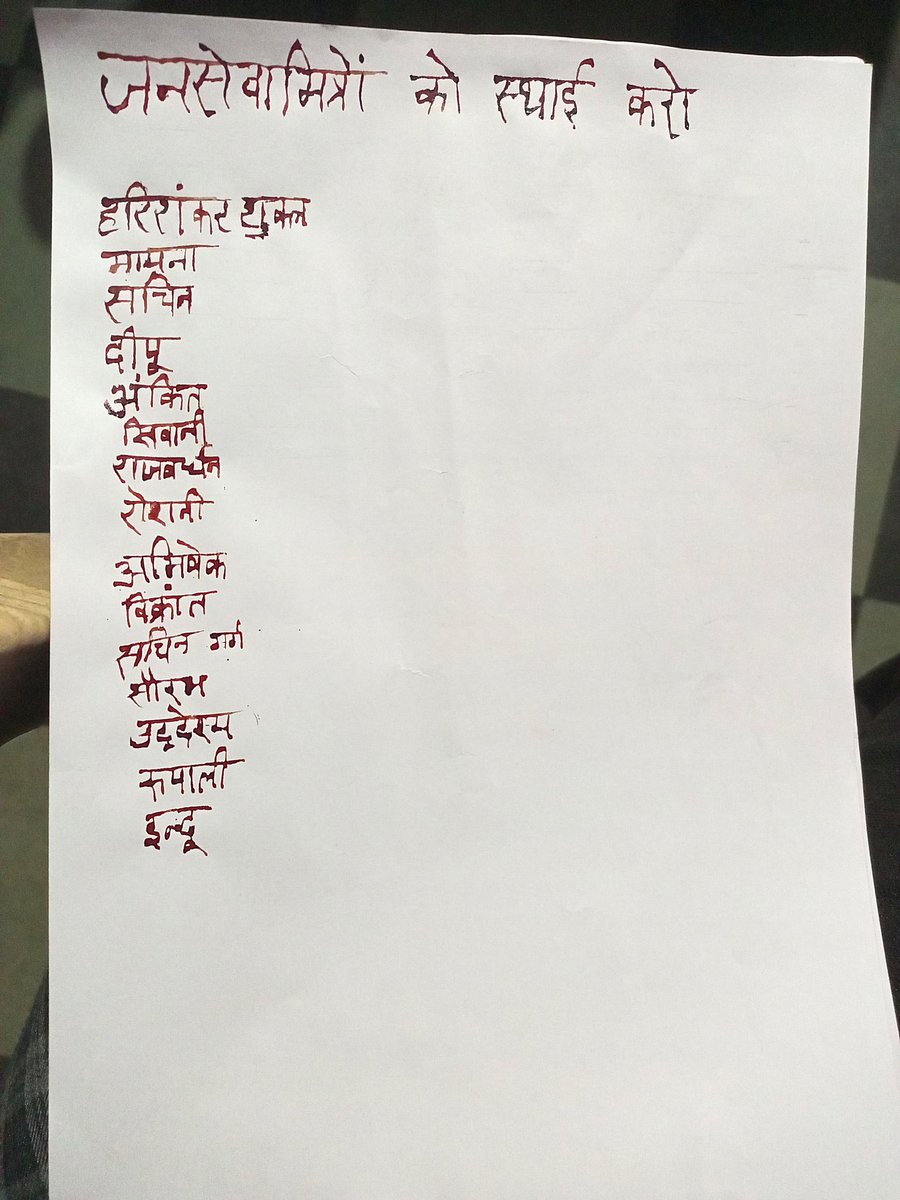 जनसेवामित्रों को स्थाई करो
हरिशंकर शुक्ल
सचिन
दीपू
अंकित
सिवानी
राजवर्धन
रोशनी
अभिषेक
विक्रांत
सचिन गर्ग
सौरभ
उद्देश्य
रुपाली
इन्दू